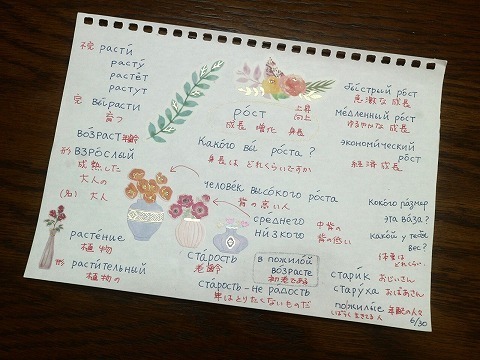 不完 расти́
расту́
растёт
расту́т
完 вы́расти
育つ
во́зраст 年齢
形 взро́слый
成熟した
大人の
(名) 大人
расте́ние
植物
形 расти́тельный
植物の
ро́ст
上昇
向上
成長 増化 身長
Како́го вы́ ро́ста ?
身長は どれくらいですか
челове́к высо́кого ро́ста
背の高い人
сре́днего 中背の
ни́зкого 背の低い
ста́рость
老齢
в пожило́й
во́зрасте
初老である
ста́рость - не ра́дость
年はとりたくないものだ
бы́стрый ро́ст
急激な 成長
ме́дленный ро́ст
ゆるやかな 成長
экономи́ческий
ро́ст
経済 成長
Како́го ра́змер
э́та ва́за ?
како́й у тебя́
вес ?
体重は
どれくらい
стари́к おじいさん
стару́ха おばあさん
пожилы́е 年配の人々
6/30